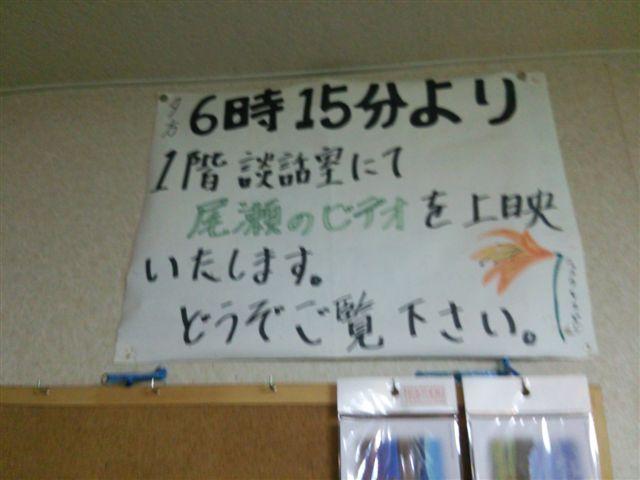 夕方
6時15分より
1階談話室にて
尾瀬のビデオを上映
いたします。
どうぞご覧下さい。